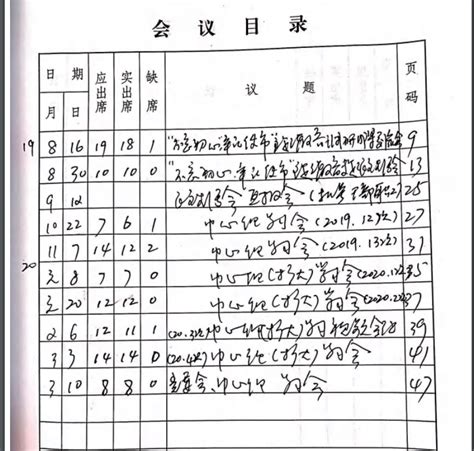 会 议 目 录
日 期 应出席 实出席 缺席 议 题 页码
月 日
19 8 16 19 18 1 "不忘初心、牢记使命"主题 9
8 30 10 10 0 "不忘初心、牢记使命"主题 13
9 12 25
10 22 7 6 1 中心组学习会(2019.12次) 27
11 7 14 12 2 中心组学习会(2019.13次) 31
20 元 8 7 7 0 中心组(扩大)学习会(2020.1次) 35
元 20 12 12 0 中心组(扩大)学习会(2020.2次) 37
2 6 12 11 1 (20.3次)中心组(扩大)学习 39
3 3 14 14 0 (20.4次)中心组(扩大)学习会 41
3 10 8 8 0 党委会、中心组学习会 47